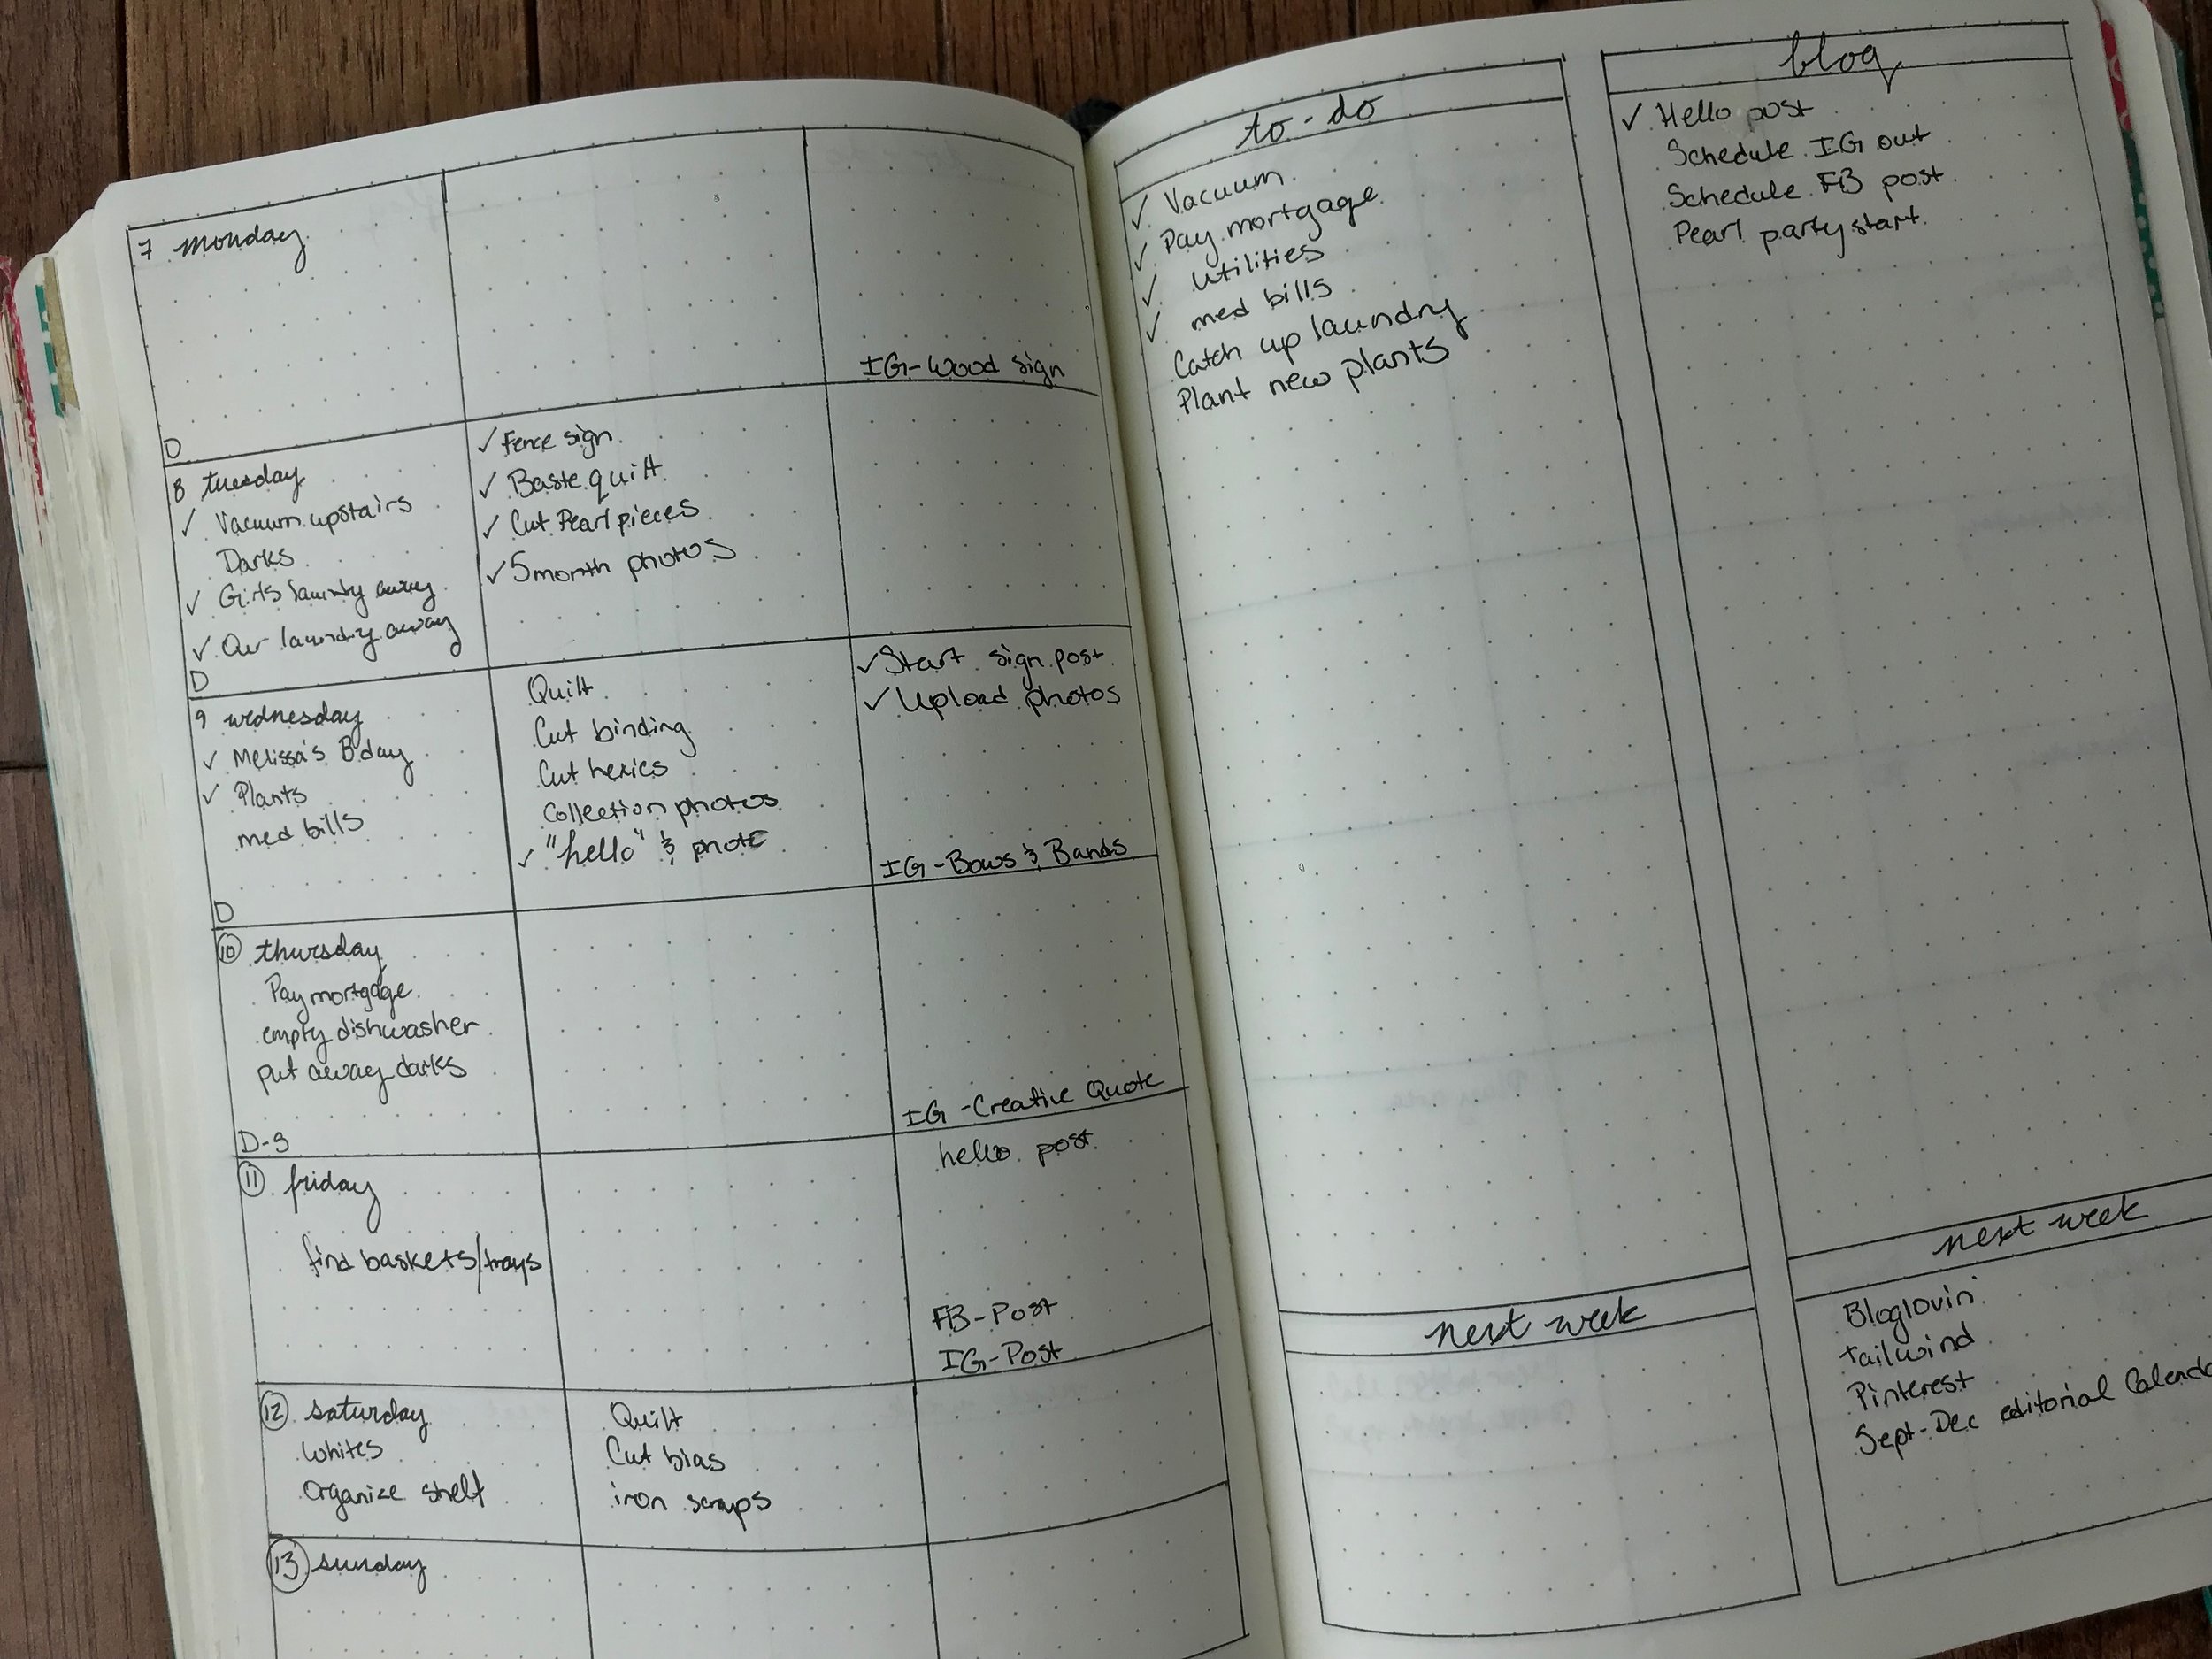 7 monday
IG-Wood sign
D
8 tuesday
✓ Vacuum upstairs
Darks
✓ Girls laundry away
✓ Our laundry away
D
✓ Fence sign
✓ Baste quilt
✓ Cut Pearl pieces
✓ 5 month photos
9 wednesday
✓ Melissa's B'day
✓ Plants
med bills
D
Quilt
Cut binding
Cut hexies
Collection photos
✓ "hello" & photo
✓ Start sign post
✓ Upload photos
IG-Bows & Bands
10 thursday
Pay mortgage
empty dishwasher
put away darks
D-3
IG-Creative Quote
11 friday
find baskets/trays
hello post
FB-Post
IG-Post
12 saturday
Whites
Organize shelf
Quilt
Cut bias
iron scraps
13 sunday
to-do
✓ Vacuum
✓ Pay mortgage
✓ Utilities
✓ med bills
Catch up laundry
Plant new plants
next week
blog
✓ Hello post
Schedule IG out
Schedule FB post
Pearl party start
next week
Bloglovin'
tailwind
Pinterest
Sept-Dec editorial Calenda